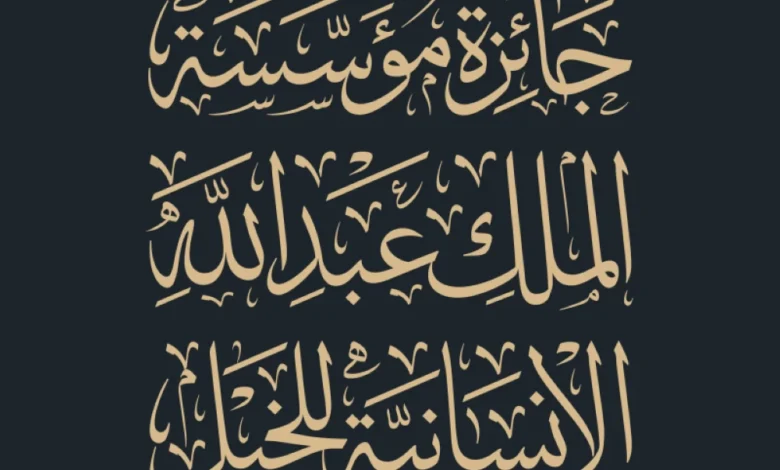 جَائِزَة مُؤَسَّسَة
المَلِكِ عَبْدِ اللَّهِ
الإِنْسَانِيَّة لِلخَيْل